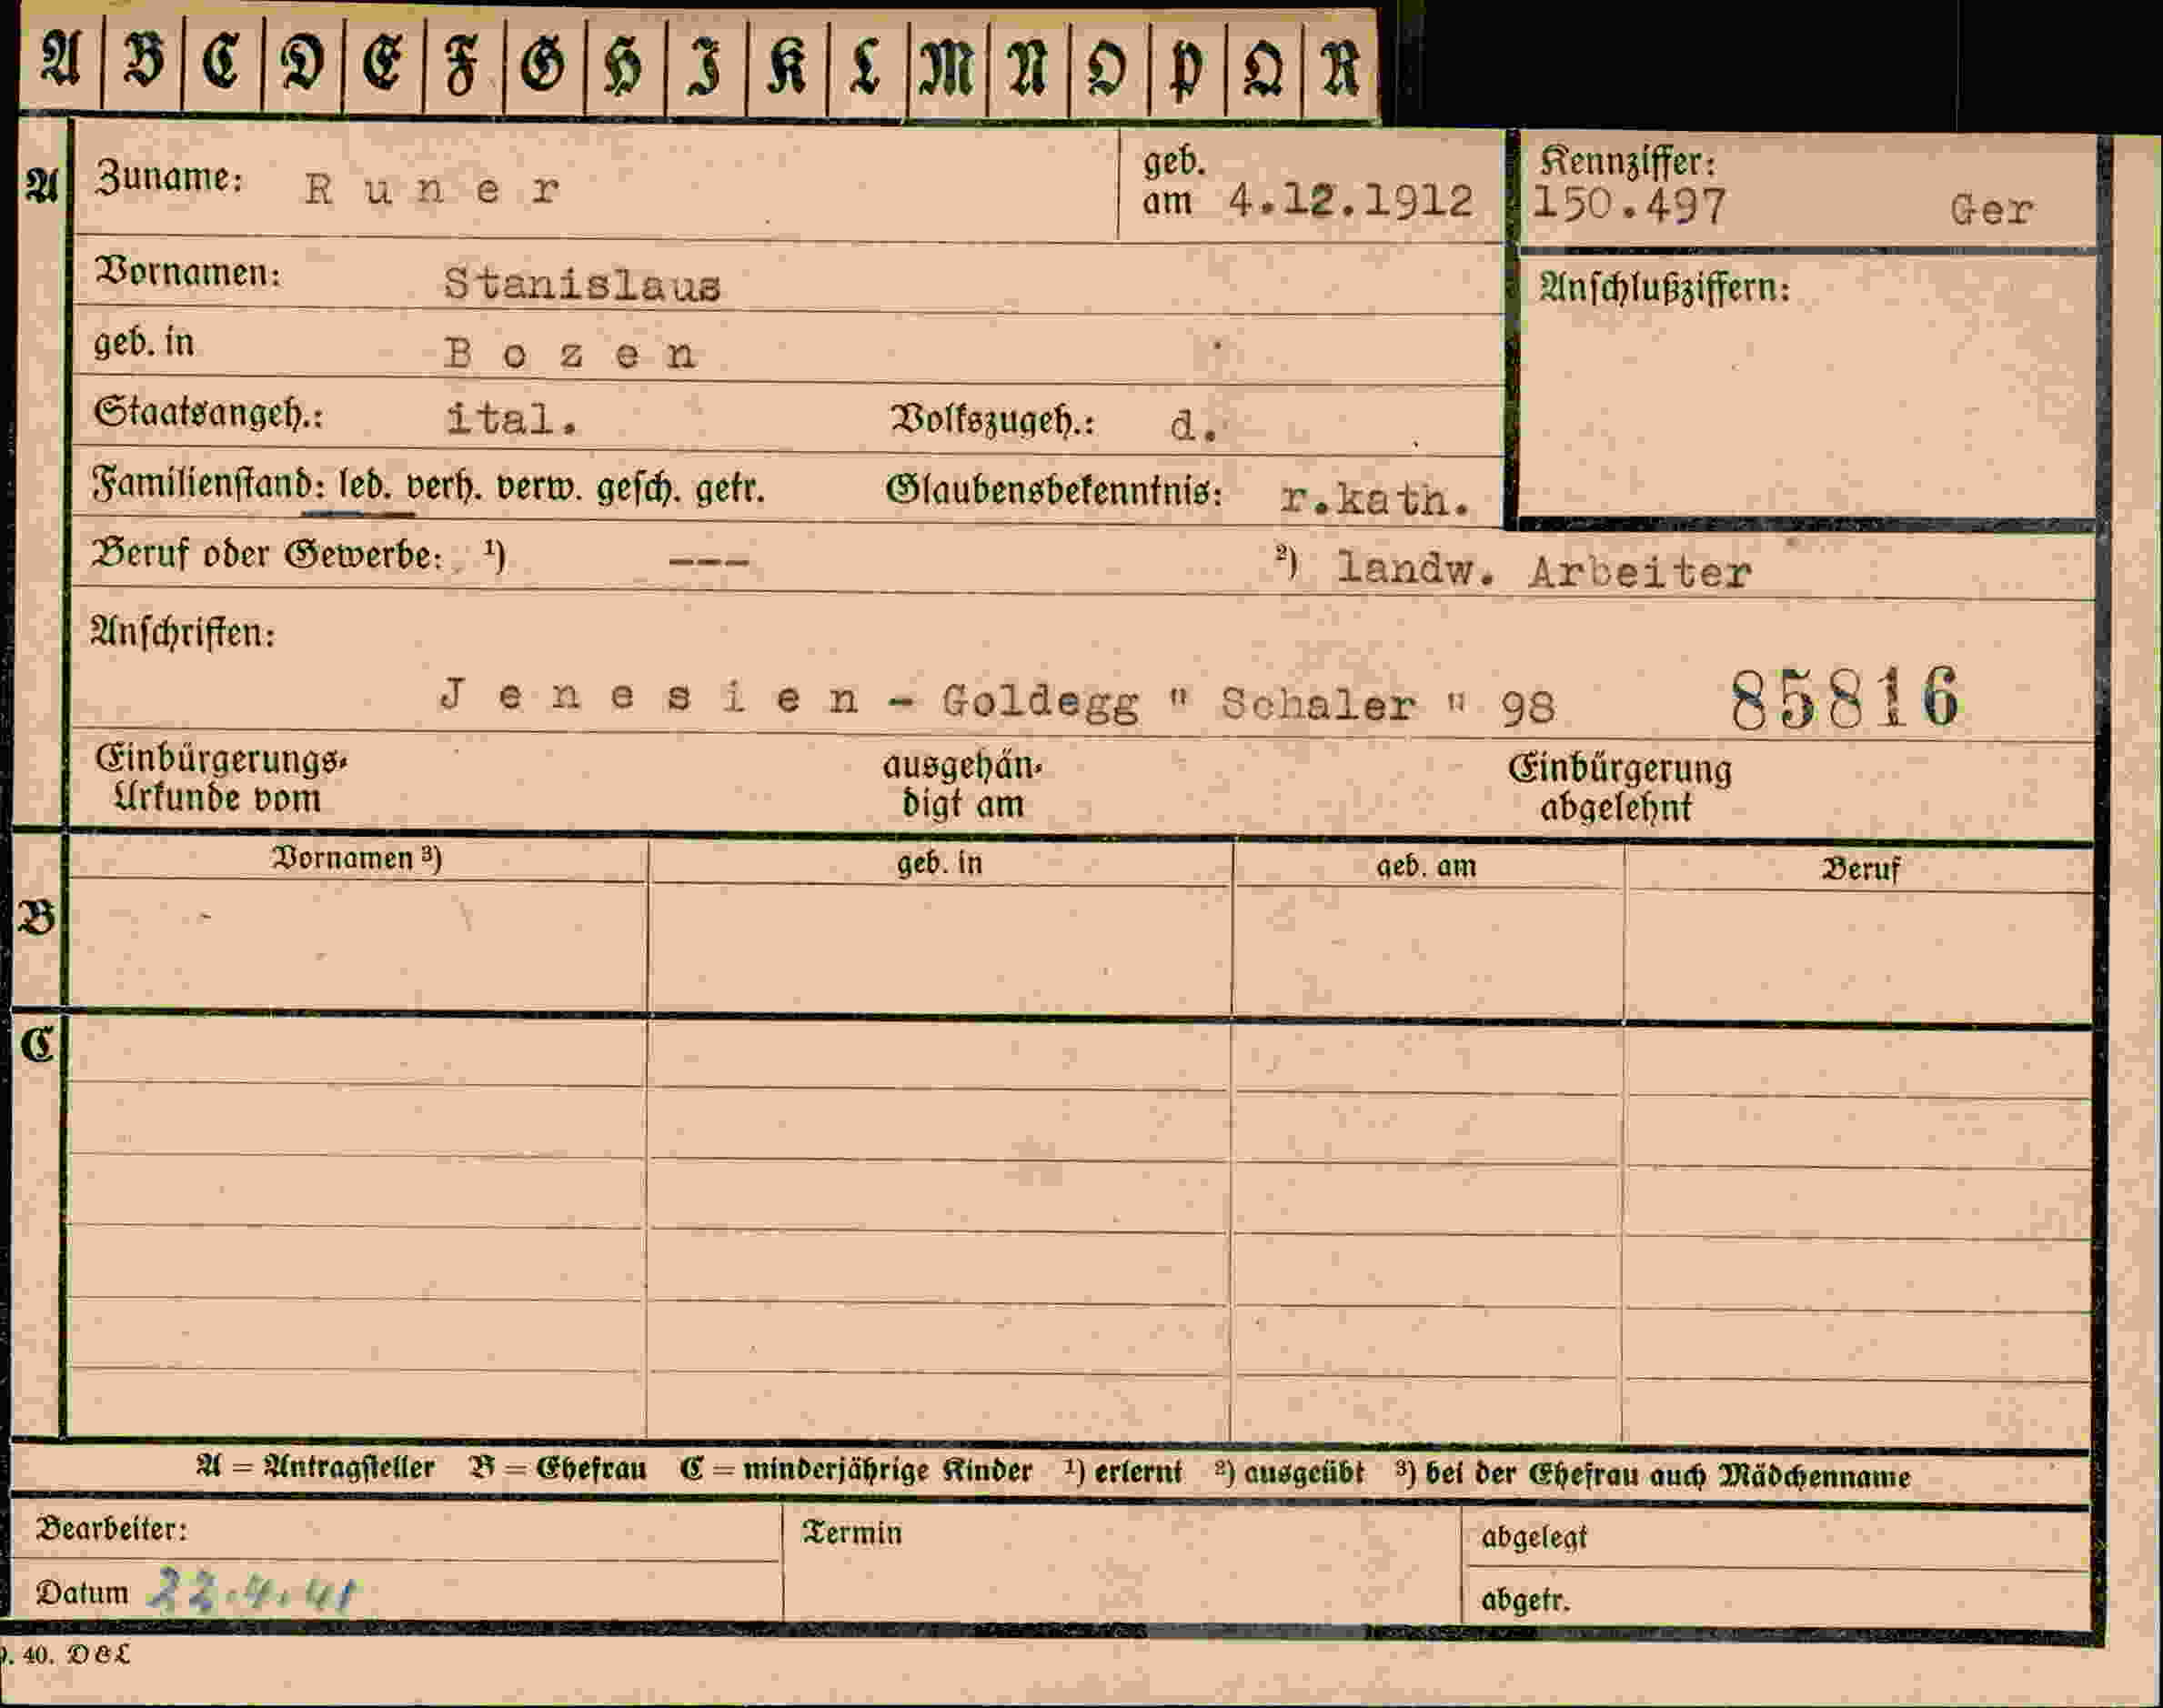 A B C D E F G H I K L M N O P Q R
A Zuname: Runer geb. am 4.12.1912 Kennziffer: 150.497 Ger
Vornamen: Stanislaus Anschlußziffern:
geb. in Bozen
Staatsangeh.: ital. Volkszugeh.: d.
Familienstand: led. verh. verw. gesch. getr. Glaubensbekenntnis: r.kath.
Beruf oder Gewerbe: ¹) --- ²) landw. Arbeiter
Anschriften:
Jenesien - Goldegg " Schaler " 98 85816
Einbürgerungs- ausgehän- Einbürgerung
Urkunde vom digt am abgelehnt
Vornamen ³) geb. in geb. am Beruf
B
C
A = Antragsteller B = Ehefrau C = minderjährige Kinder ¹) erlernt ²) ausgeübt ³) bei der Ehefrau auch Mädchenname
Bearbeiter: Termin abgelegt
Datum 22.4.41 abgetr.
40. DBL